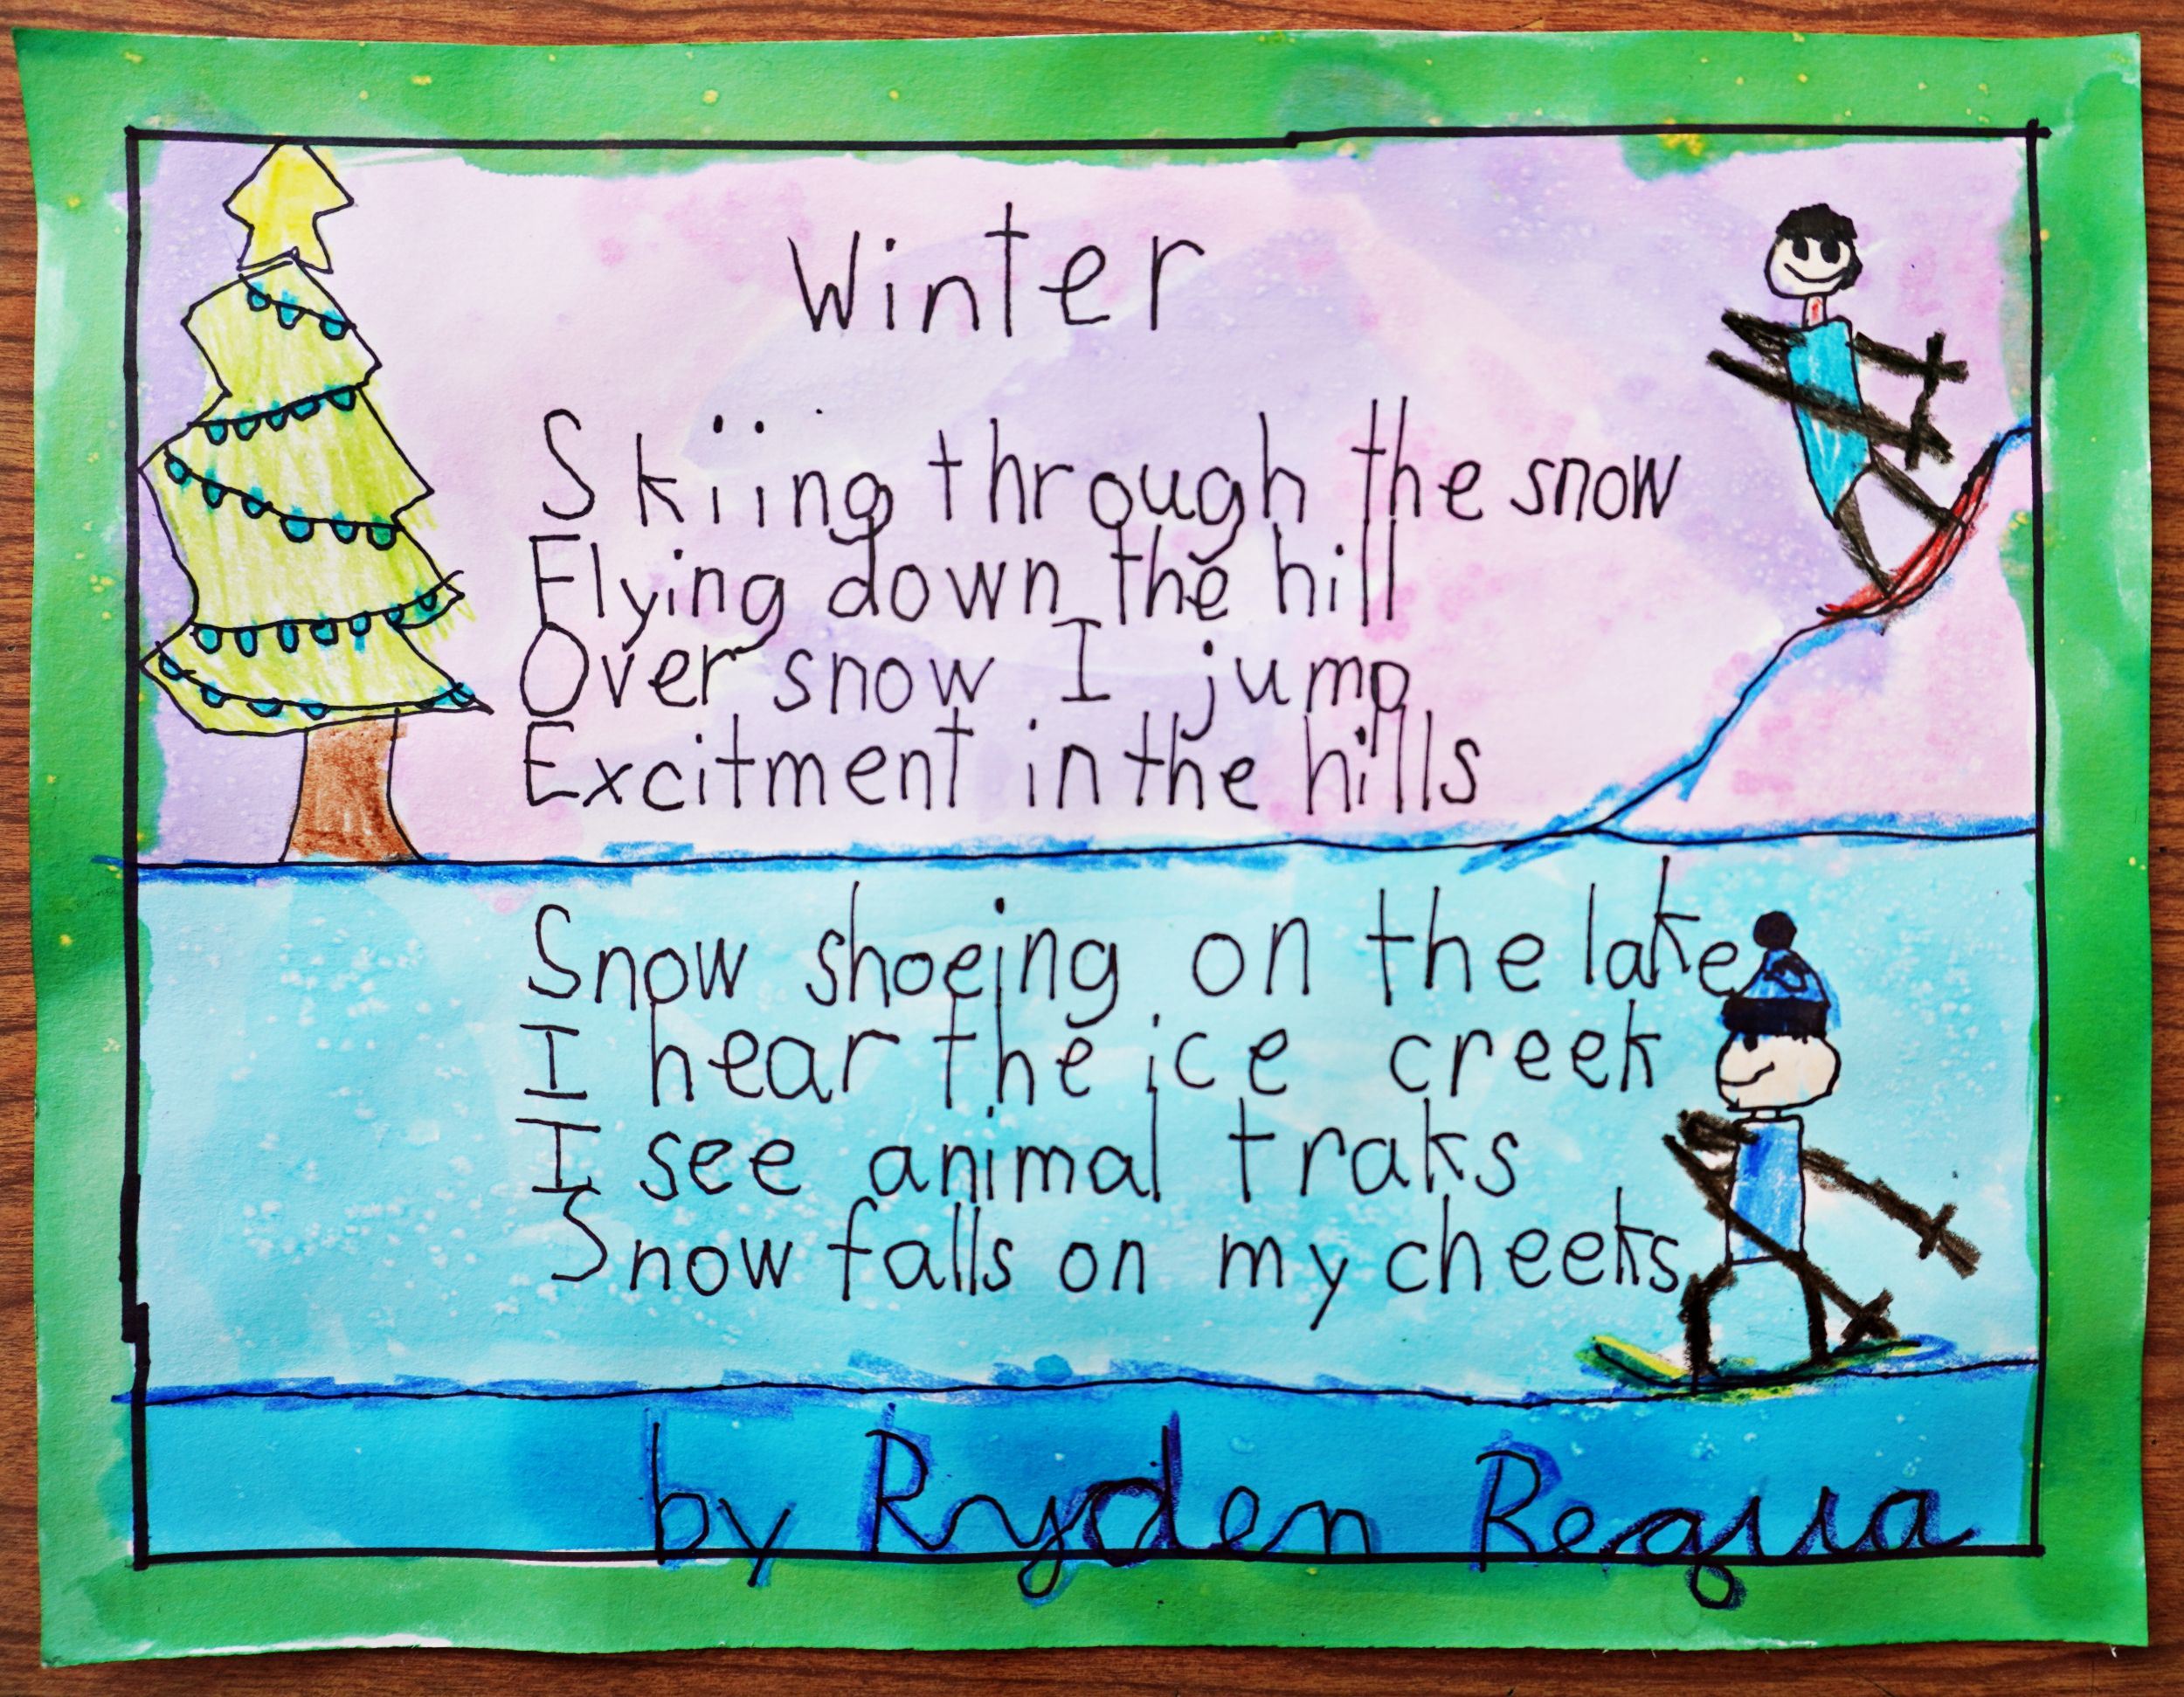 Winter
Skiing through the snow
Flying down the hill
Over snow I jump
Excitment in the hills
Snow shoeing on the lake
I hear the ice creek
I see animal traks
Snow falls on my cheeks
by Ryden Requa